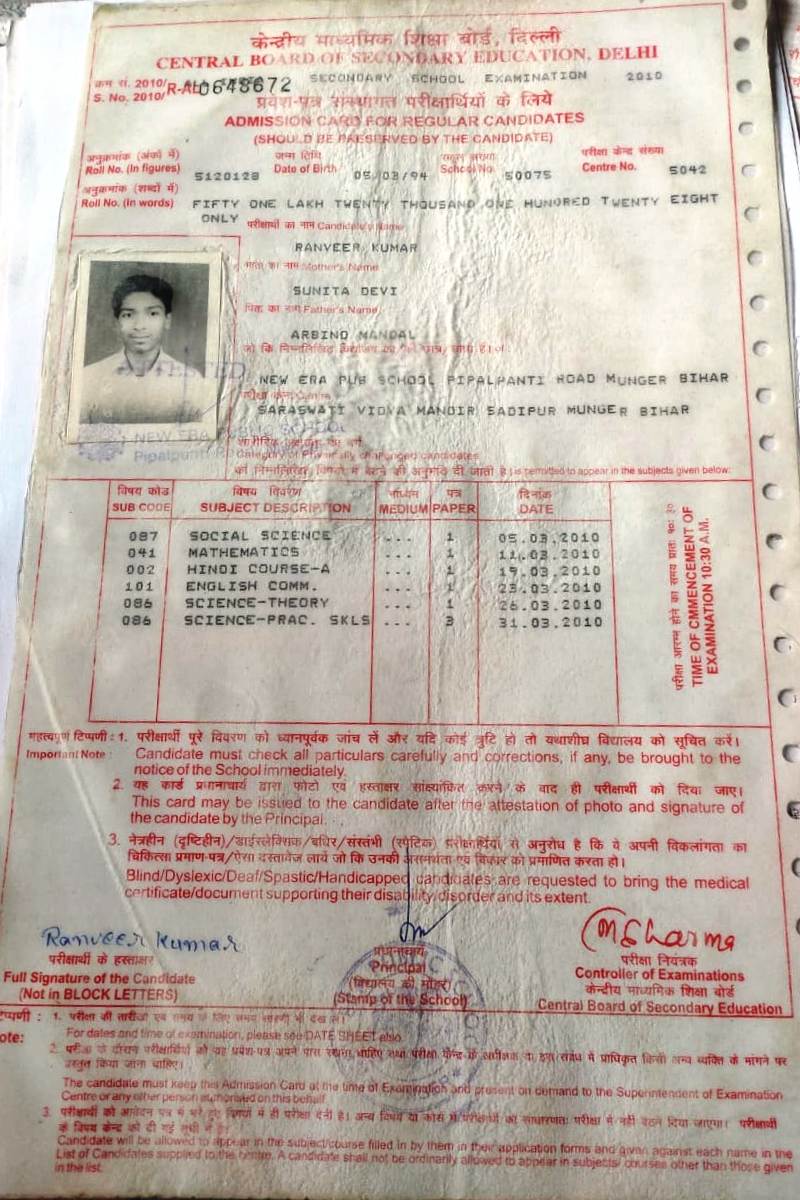 केन्द्रीय माध्यमिक शिक्षा बोर्ड, दिल्ली
CENTRAL BOARD OF SECONDARY EDUCATION, DELHI
क्रम सं. 2010/
S. No. 2010/ R-ALL 0648672 SECONDARY SCHOOL EXAMINATION 2010
प्रवेश-पत्र संस्थागत परीक्षार्थियों के लिये
ADMISSION CARD FOR REGULAR CANDIDATES
(SHOULD BE PRESERVED BY THE CANDIDATE)
अनुक्रमांक (अंकों में) जन्म तिथि परीक्षा केन्द्र संख्या
Roll No. (In figures) 5120128 Date of Birth 05/03/94 School No. 50075 Centre No. 5042
अनुक्रमांक (शब्दों में)
Roll No. (In words) FIFTY ONE LAKH TWENTY THOUSAND ONE HUNDRED TWENTY EIGHT
ONLY परीक्षार्थी का नाम Candidate's Name
RANVEER KUMAR
माता का नाम Mother's Name
SUNITA DEVI
पिता का नाम Father's Name
ARBIND MANDAL
NEW ERA PUB SCHOOL PIPALPANTI ROAD MUNGER BIHAR
SARASWATI VIDYA MANDIR SADIPUR MUNGER BIHAR
ATTESTED
NEW ERA PUBLIC SCHOOL
Category of Physically challenged candidates
को निम्नलिखित विषयों में बैठने की अनुमति दी जाती है। is permitted to appear in the subjects given below:
विषय कोड विषय विवरण माध्यम पत्र दिनांक
SUB CODE SUBJECT DESCRIPTION MEDIUM PAPER DATE
087 SOCIAL SCIENCE ... 1 05.03.2010
041 MATHEMATICS ... 1 11.03.2010
002 HINDI COURSE-A ... 1 19.03.2010
101 ENGLISH COMM. ... 1 23.03.2010
086 SCIENCE-THEORY ... 1 26.03.2010
086 SCIENCE-PRAC. SKLS ... 3 31.03.2010
परीक्षा आरम्भ होने का समय प्रातः १०: ३०
TIME OF CMMENCEMENT OF
EXAMINATION 10:30 A.M.
महत्वपूर्ण टिप्पणी : 1. परीक्षार्थी पूरे विवरण को ध्यानपूर्वक जांच लें और यदि कोई त्रुटि हो तो यथाशीघ्र विद्यालय को सूचित करें।
Important Note : Candidate must check all particulars carefully and corrections, if any, be brought to the
notice of the School immediately.
2. यह कार्ड प्रधानाचार्य द्वारा फोटो एवं हस्ताक्षर सांक्ष्यांकित करने के बाद ही परीक्षार्थी को दिया जाए।
This card may be issued to the candidate after the attestation of photo and signature of
the candidate by the Principal.
3. नेत्रहीन (दृष्टिहीन)/डाईस्लेक्सिक/बधिर/संस्तंभी (स्पैटिक) परीक्षार्थियों से अनुरोध है कि वे अपनी विकलांगता का
चिकित्सा प्रमाण-पत्र/ऐसा दस्तावेज लायें जो कि उनकी असमर्थता एवं विस्तार को प्रमाणित करता हो।
Blind/Dyslexic/Deaf/Spastic/Handicapped candidates are requested to bring the medical
certificate/document supporting their disability/disorder and its extent.
Ranveer Kumar
परीक्षार्थी के हस्ताक्षर
Full Signature of the Candidate
(Not in BLOCK LETTERS)
प्रधानाचार्य
Principal
(विद्यालय की मोहर)
(Stamp of the School)
M Sharma
परीक्षा नियंत्रक
Controller of Examinations
केन्द्रीय माध्यमिक शिक्षा बोर्ड
Central Board of Secondary Education
टिप्पणी : 1. परीक्षा की तारीख एवं समय के लिए समय सारणी भी देख लें।
ote: For dates and time of examination, please see DATE SHEET also.
2. परीक्षा के दौरान परीक्षार्थियों को यह प्रवेश-पत्र अपने पास रखना चाहिए तथा परीक्षा केन्द्र के अधीक्षक या इस संबंध में प्राधिकृत किसी अन्य व्यक्ति के मांगने पर
प्रस्तुत किया जाना चाहिए।
The candidate must keep this Admission Card at the time of Examination and present on demand to the Superintendent of Examination
Centre or any other person authorised on this behalf.
3. परीक्षार्थी को आवेदन पत्र में भरे हुए विषयों में ही परीक्षा देनी है। अन्य विषय या कोर्स में परीक्षार्थी को साधारणतः परीक्षा में नहीं बैठने दिया जाएगा। परीक्षार्थी
के विषय केन्द्र को दी गई सूची में है।
Candidate will be allowed to appear in the subject/course filled in by them in their application forms and given against each name in the
List of Candidates supplied to the centre. A candidate shall not be ordinarily allowed to appear in subjects/ courses other than those given
in the list.